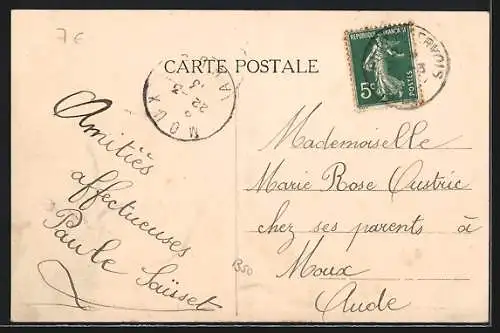 7 €
CARTE POSTALE
REPUBLIQUE FRANÇAISE
5c
POSTES
MOUX
22 - 3
13
Amitiés
affectueuses
Paule Saïsset
Mademoiselle
Marie Rose Oustric
chez ses parents à
Moux
Aude
1350